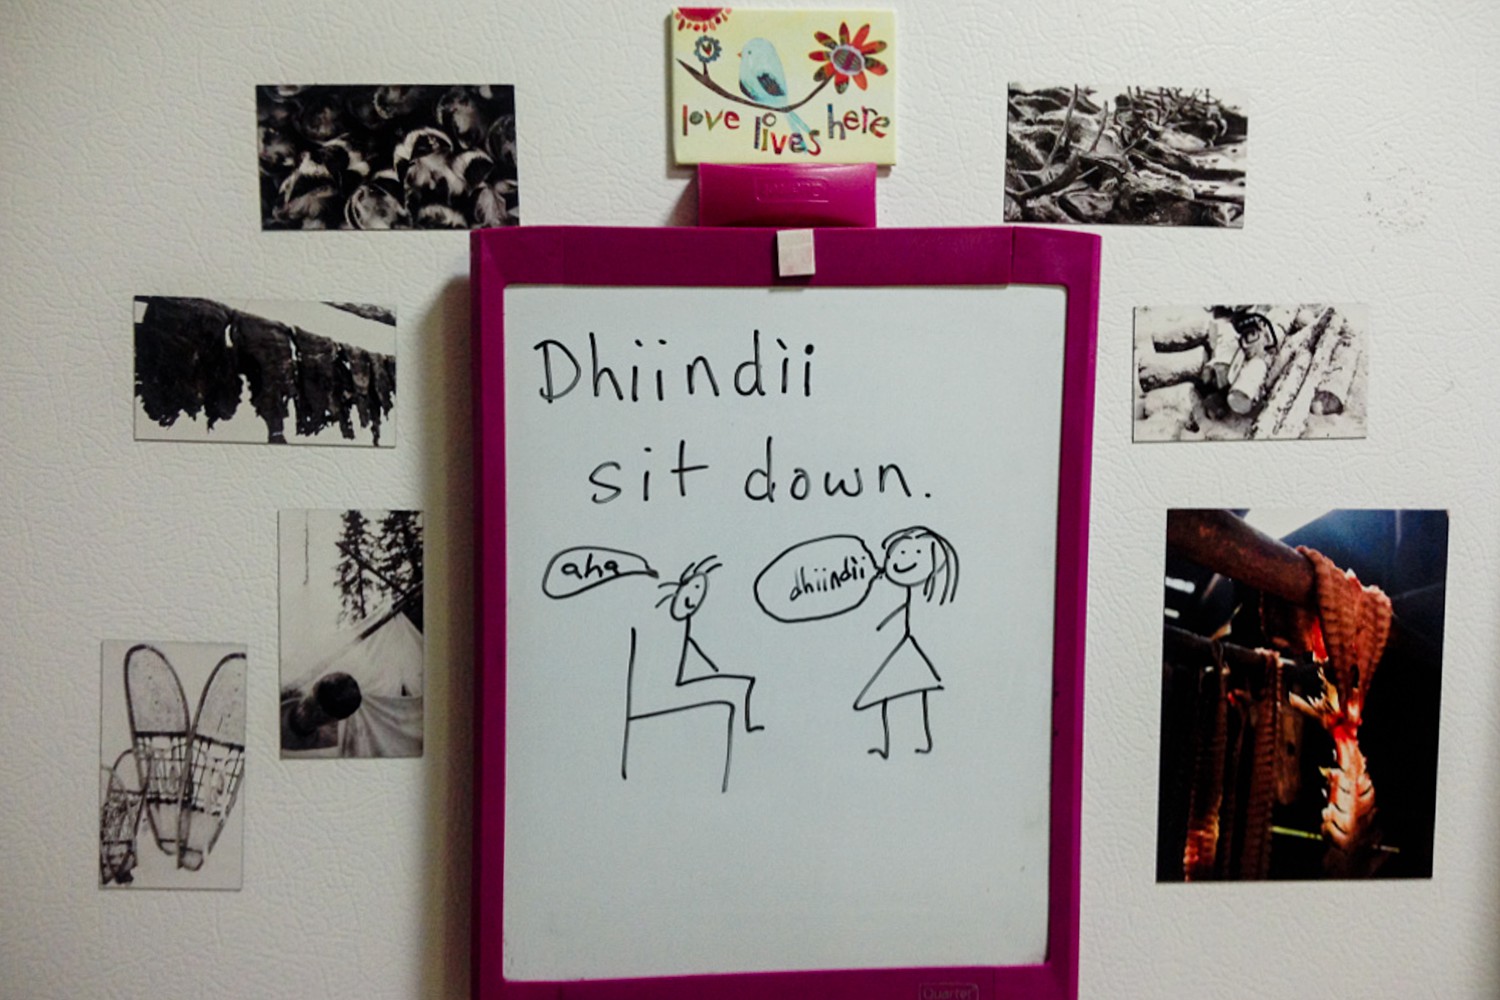 love lives here
Dhiindìi
sit down.
aha
dhiindìi
Quartet